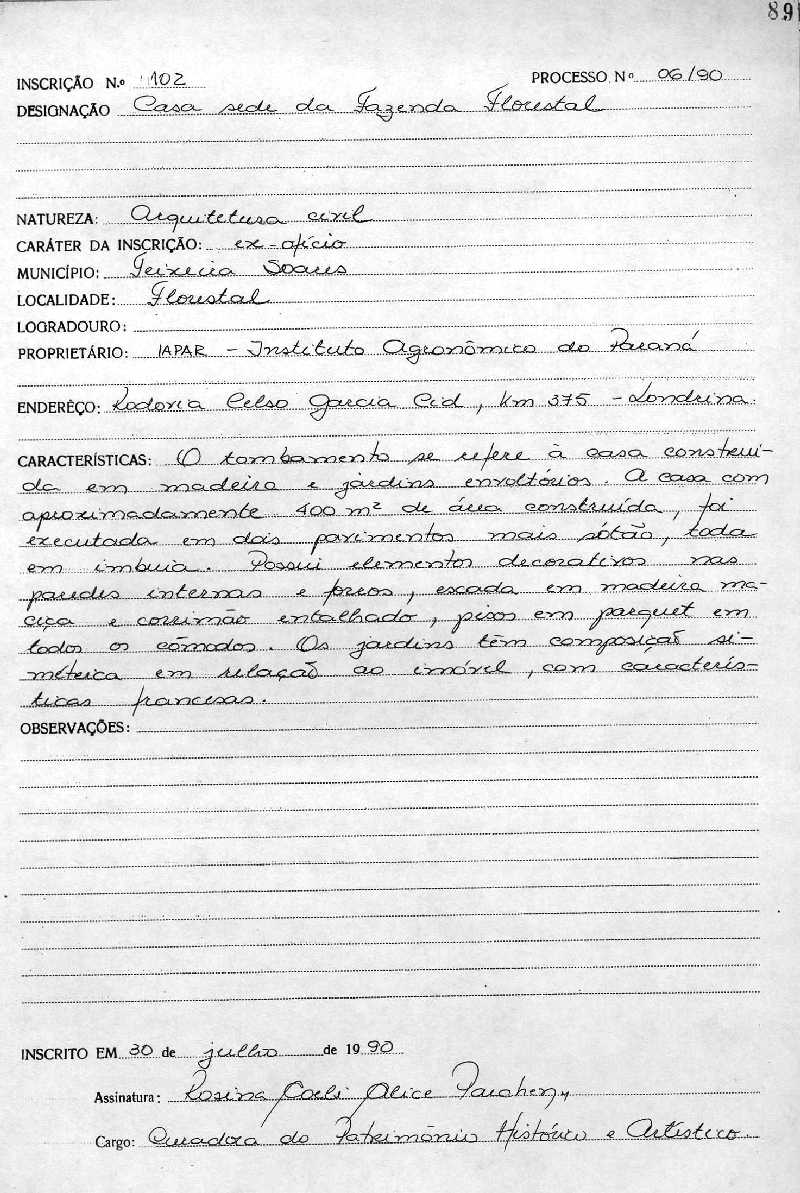 89
INSCRIÇÃO N.º 102 PROCESSO N.º 06/90
DESIGNAÇÃO Casa sede da Fazenda Florestal
NATUREZA: Arquitetura civil
CARÁTER DA INSCRIÇÃO: ex-ofício
MUNICÍPIO: Teixeira Soares
LOCALIDADE: Florestal
LOGRADOURO:
PROPRIETÁRIO: IAPAR - Instituto Agronômico do Paraná
ENDERÊÇO: Rodovia Celso Garcia Cid, Km 375 - Londrina
CARACTERÍSTICAS: O tombamento se refere à casa construí-
da em madeira e jardins envoltórios. A casa com
aproximadamente 400 m² de área construída, foi
executada em dois pavimentos mais sótão, toda
em imbuia. Possui elementos decorativos nas
paredes internas e forros, escada em madeira ma-
ciça e corrimão entalhado, pisos em parquet em
todos os cômodos. Os jardins têm composição si-
métrica em relação ao imóvel, com caracterís-
ticas francesas.
OBSERVAÇÕES:
INSCRITO EM 30 de julho de 1990
Assinatura: Rosina Coeli Alice Parchen
Cargo: Curadora do Patrimônio Histórico e Artístico